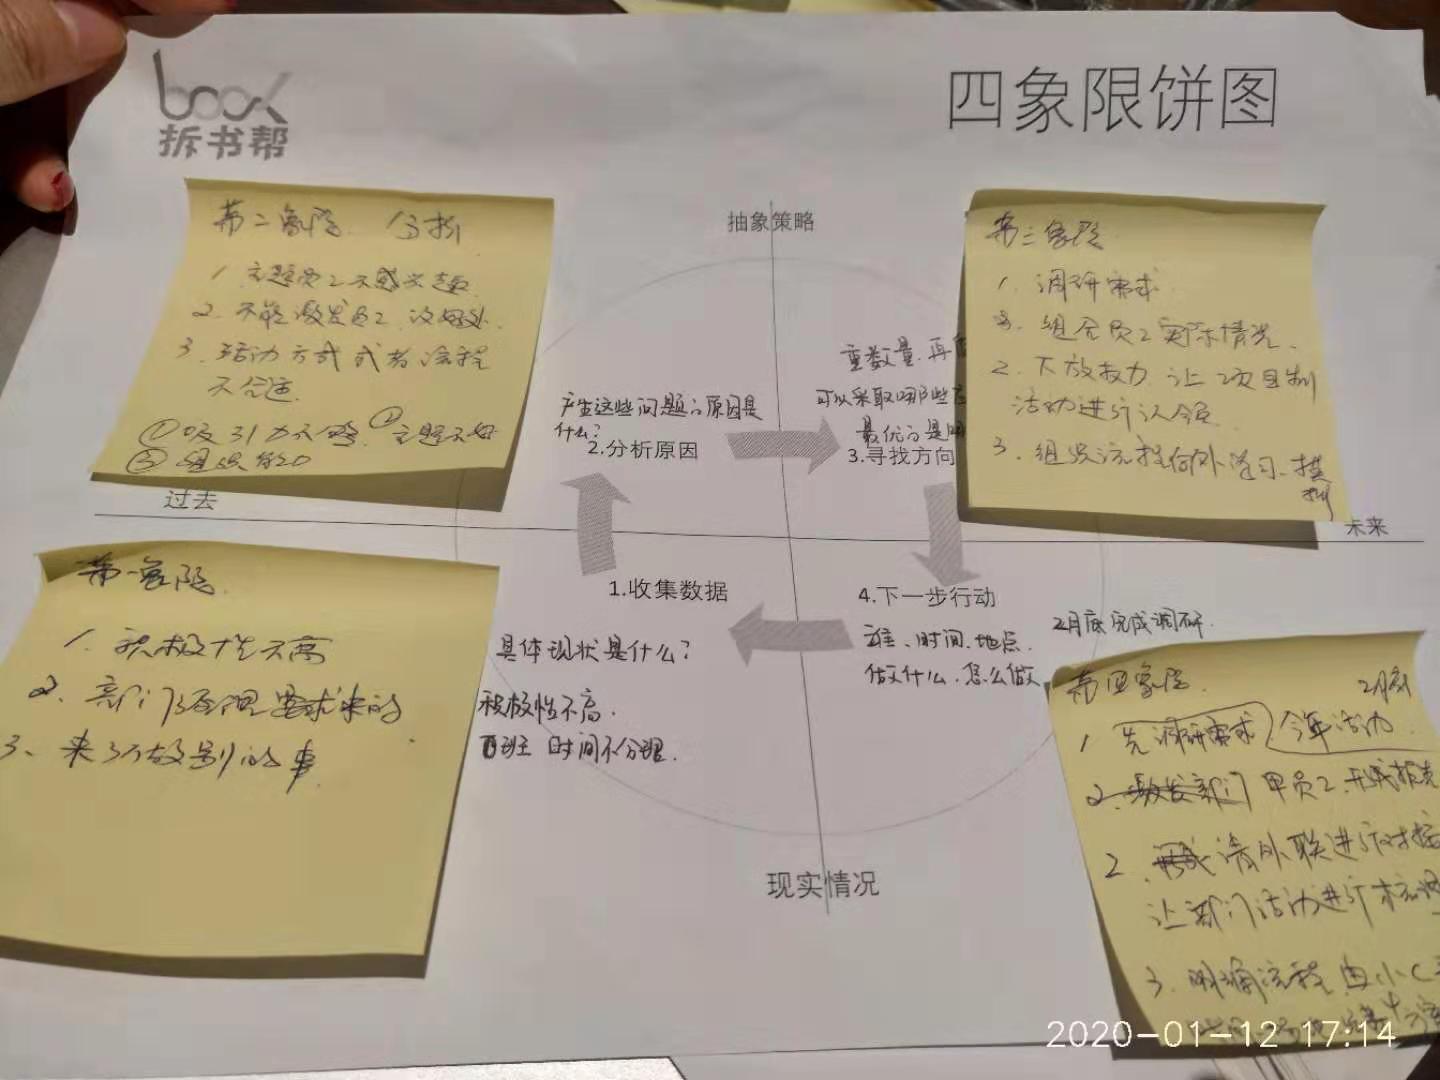 book
拆书帮
四象限饼图
抽象策略
过去
未来
现实情况
第二象限 分析
1. 主题员工不感兴趣
2. 不能激发员工 没好处
3. 活动方式或者流程
不合适
①吸引力不够 ②主题不好
③组织的
第三象限
1. 调研需求
组合员工实际情况
2. 下放权力 让 项目制
活动进行认领
3. 组织流程 外学习、模
产生这些问题的原因是
什么?
2.分析原因
重数量,再
可以采取哪些
最优的是
3.寻找方向
第一象限
1. 积极性不高
2. 部门经理要求来的
3、来了不做别的事
1.收集数据
具体现状是什么?
积极性不高.
班 时间不合理.
4.下一步行动
谁、时间、地点.
做什么、怎么做
2月底完成调研.
第四象限 2月底
1 先调研需求 今年活动
2. 激发部门
2. 请外联进行对接
让部门活动进行
3. 明确流程 由小C
2020-01-12 17:14